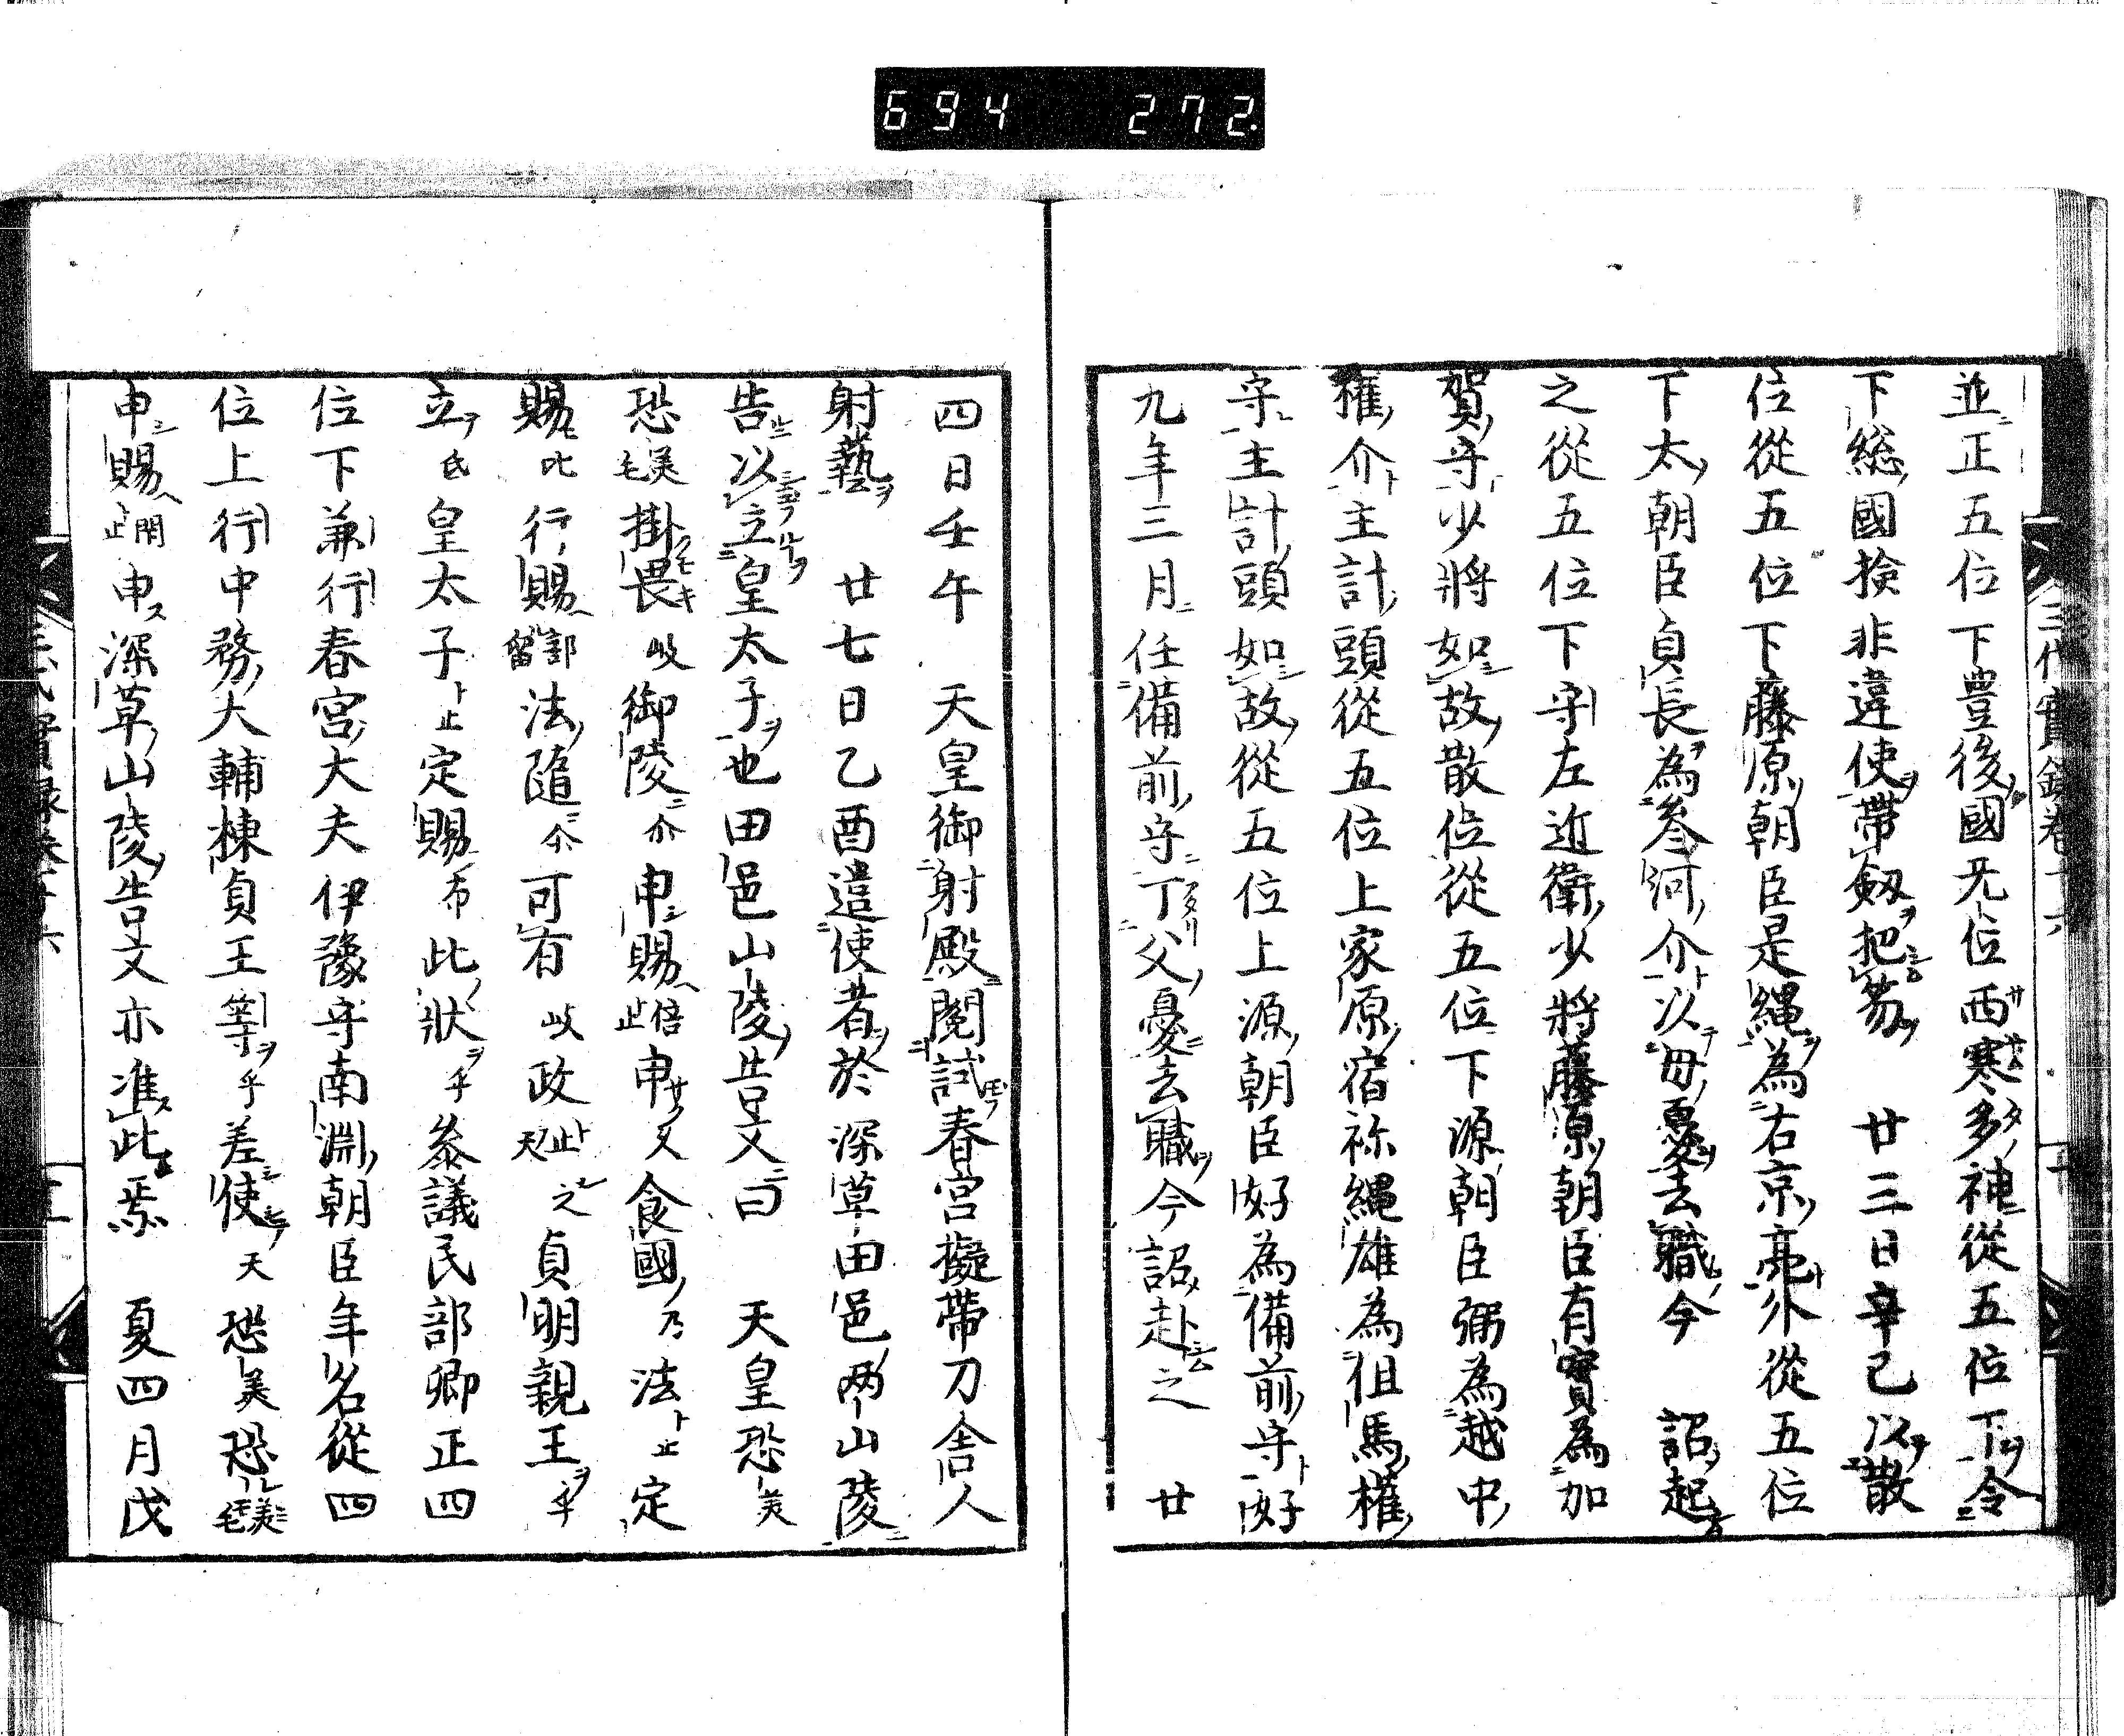 694 272.
並正五位下豊後國无位西寒多神從五位下令
下総國撿非違使帶劔把笏 廿三日辛巳以散
位從五位下藤原朝臣是繩為右京亮外從五位
下太朝臣貞長為參河介以母憂去職今 詔起
之從五位下守左近衛少將藤原朝臣有實為加
賀守少將如故散位從五位下源朝臣弼為越中
權介主計頭從五位上家原宿祢繩雄為但馬權
守主計頭如故從五位上源朝臣好為備前守好
九年三月任備前守丁父憂去職今詔赴之 廿
四日壬午 天皇御射殿閲試春宮擬帶刀舍人
射藝 廿七日乙酉遣使者於深草田邑两山陵
告以立皇太子也田邑山陵告文曰 天皇恐美
恐美毛掛畏岐御陵尓申賜倍止申久食國乃法止定
賜比行賜部留法隨尓可有岐政止天之貞明親王乎
立氐皇太子止定賜布此狀乎參議民部卿正四
位下兼行春宮大夫伊豫守南淵朝臣年名從四
位上行中務大輔棟貞王等乎差使天恐美恐美毛
申賜閇止申深草山陵告文亦准此焉 夏四月戊